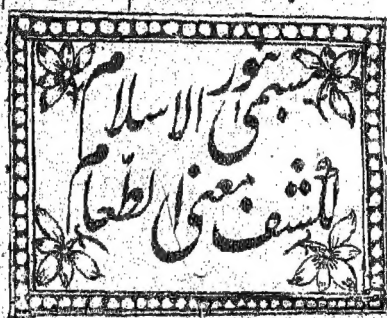 مسمی نور الاسلام
لکشف معنی الطّعام